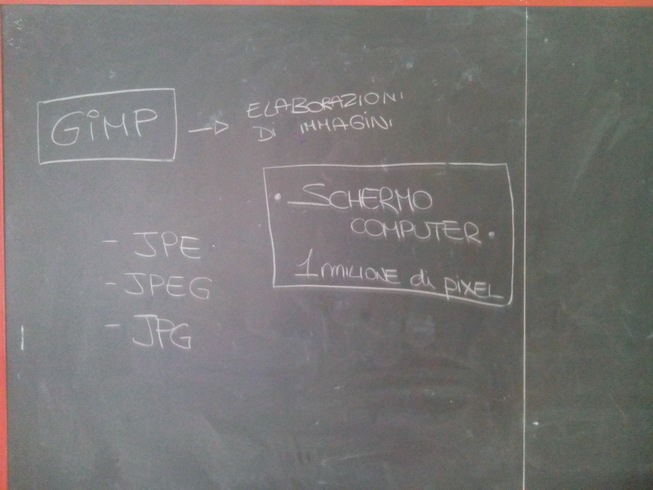 GiMP → ELABORAZIONI
DI IMMAGINI
• SCHERMO
COMPUTER •
1 MILIONE di pixEL
- JPE
- JPEG
- JPG